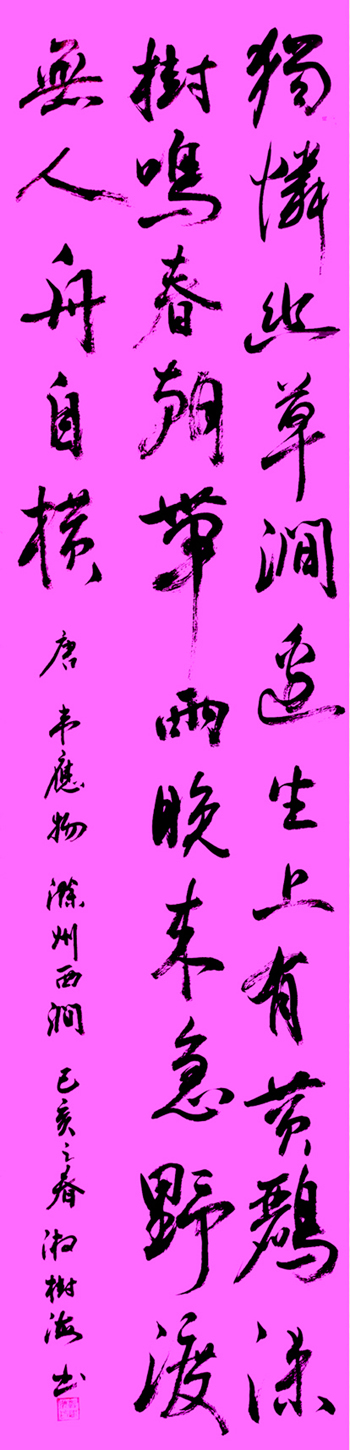 獨憐幽草澗邊生上有黃鸝深
樹鳴春潮帶雨晚來急野渡
無人舟自橫 唐 韋應物 滁州西澗 己亥之春 淑樹海书